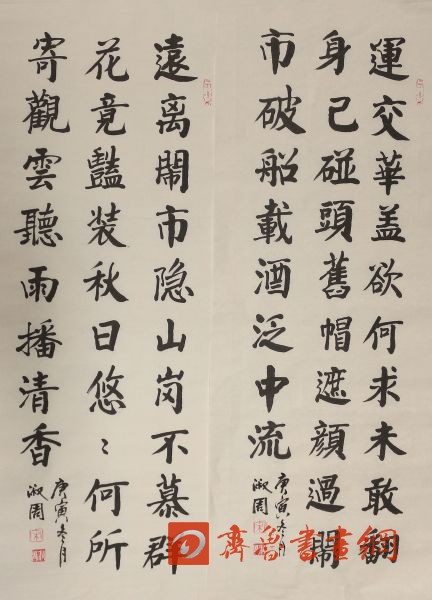 運交華盖欲何求未敢翻
身已碰頭舊帽遮顔過鬧
市破船載酒泛中流
庚寅冬月
淑周
遠离鬧市隐山岗不慕群
花竟豔装秋日悠〻何所
寄觀雲聽雨播清香
庚寅冬月
淑周
齊魯書畫網